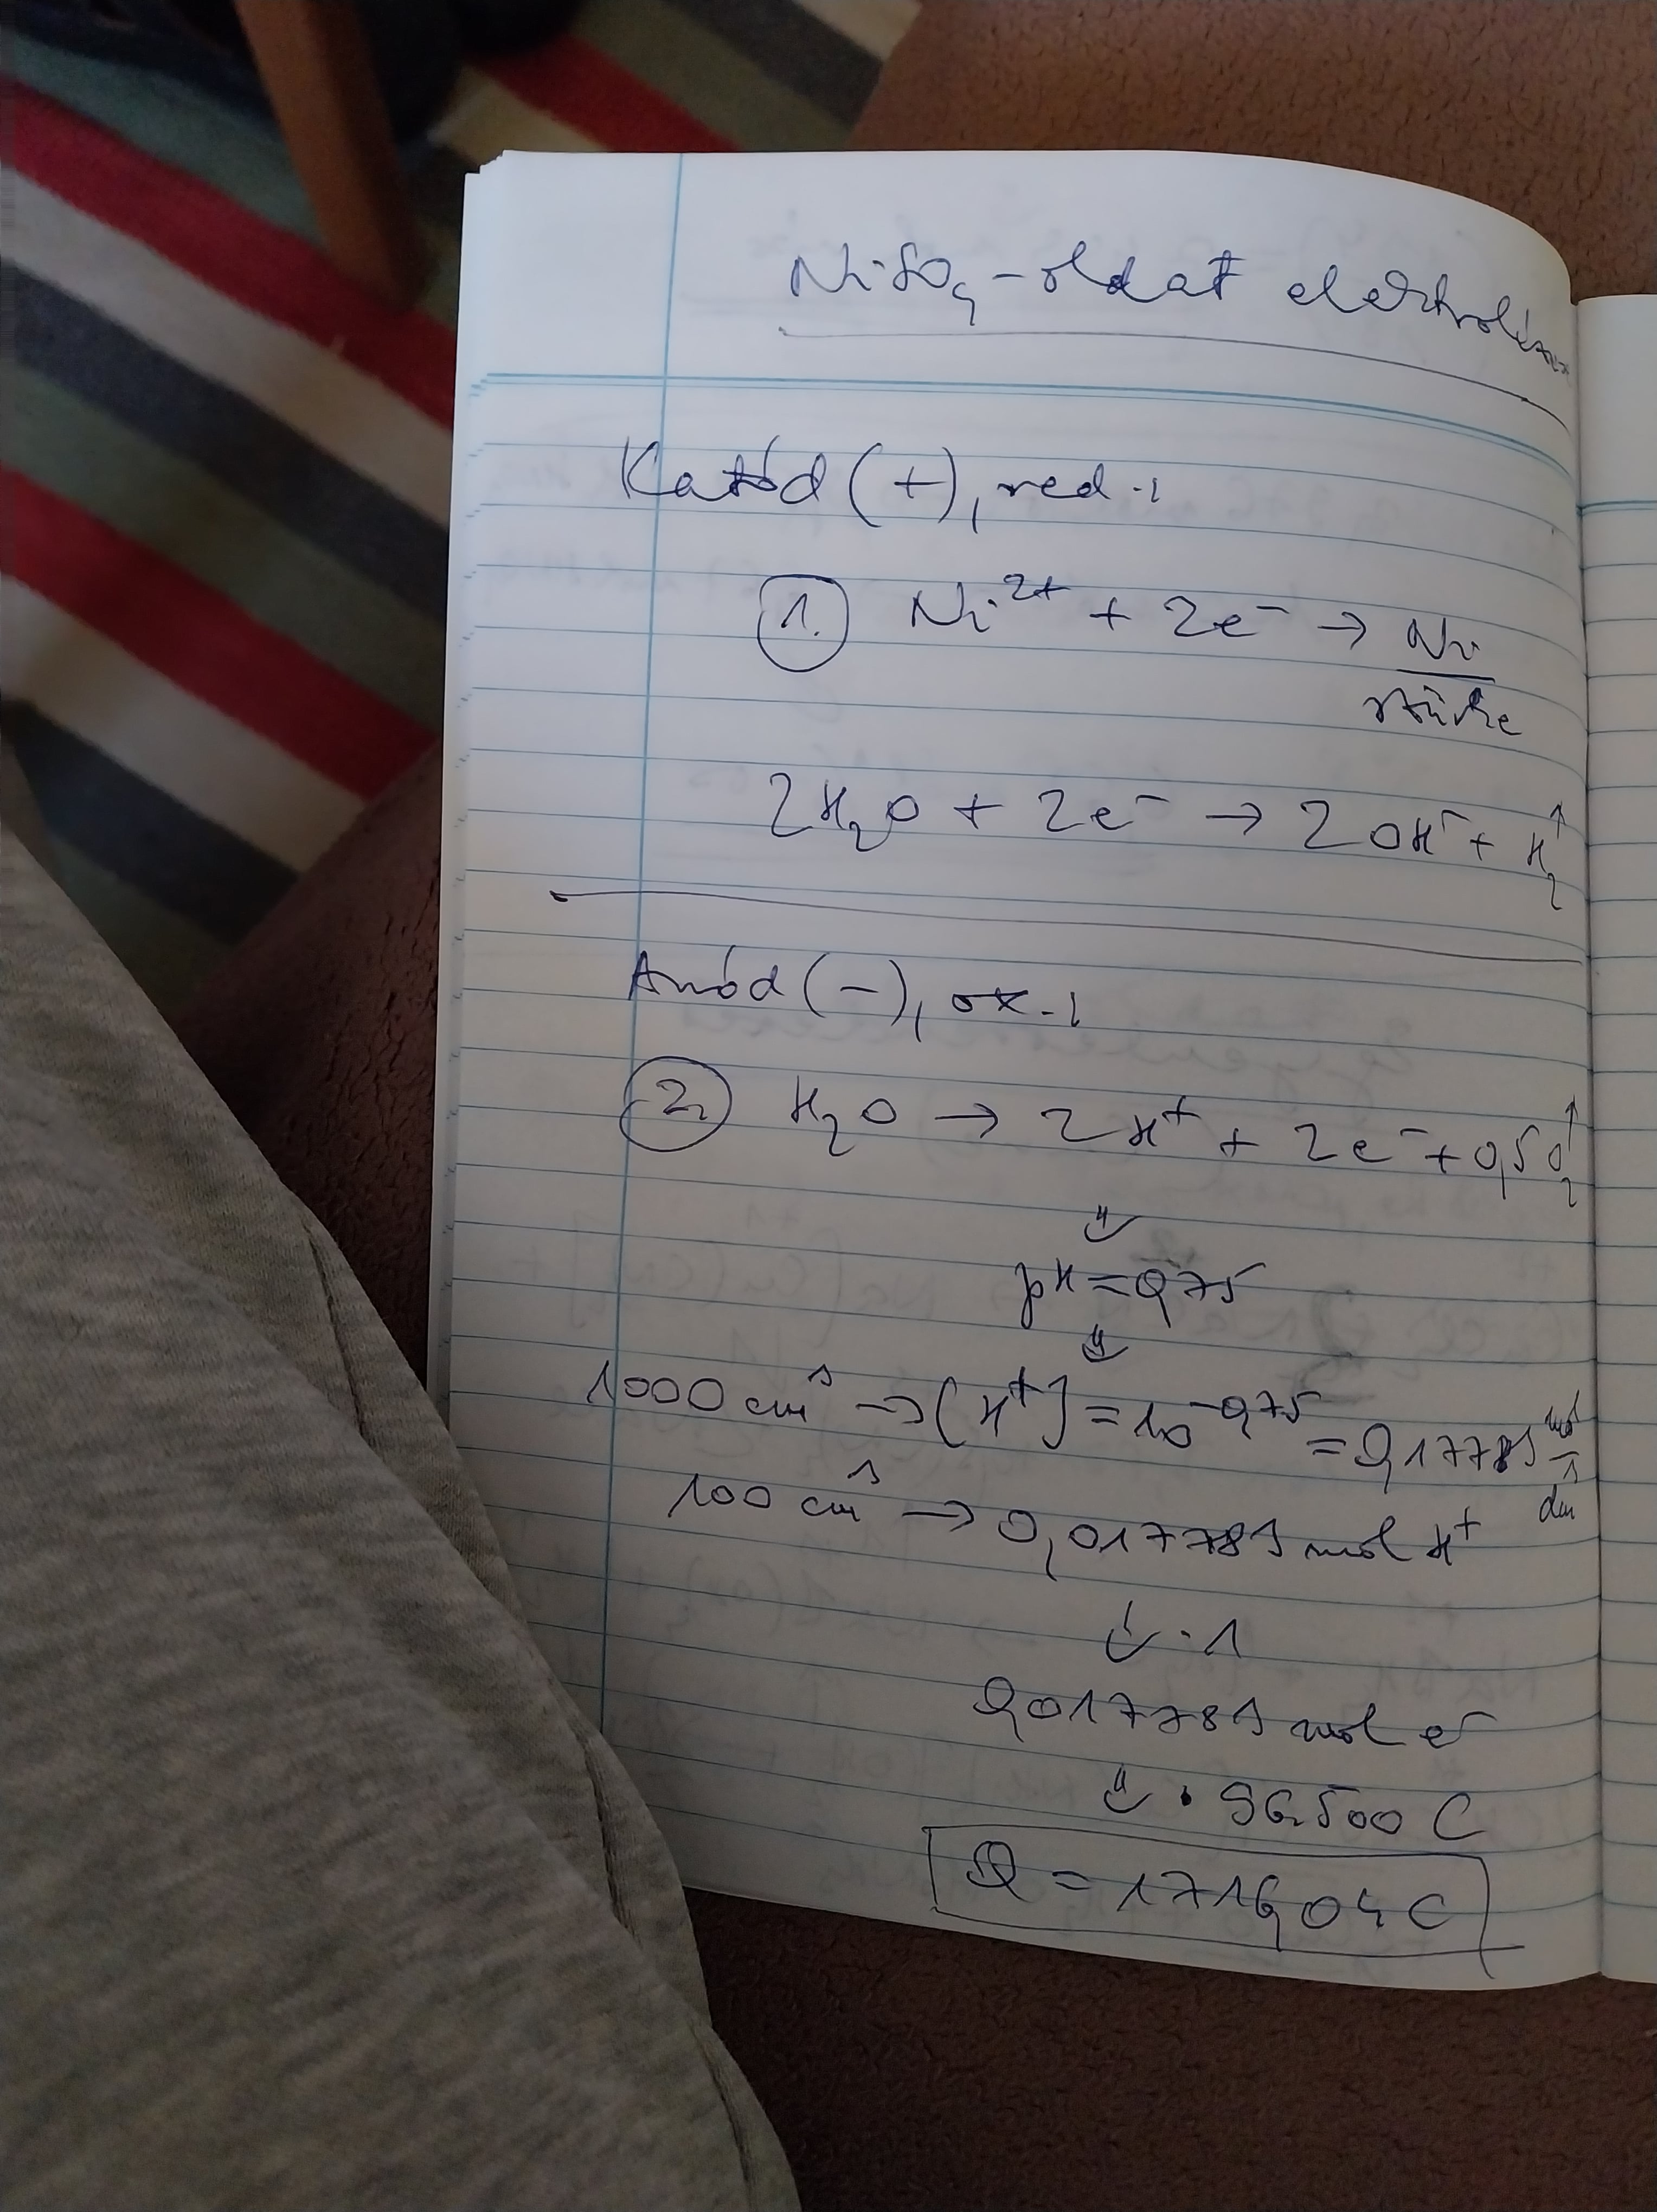 NiSO₄-oldat elektrolízise
Katód (+), red.:
1. Ni²⁺ + 2e⁻ → Ni
szürke
2H₂O + 2e⁻ → 2OH⁻ + H₂↑
Anód (-), ox.:
2. H₂O → 2H⁺ + 2e⁻ + 0,5O₂↑
⇓
pH = 0,75
⇓
1000 cm³ → [H⁺] = 10⁻⁰·⁷⁵ = 0,17783 mol/dm³
100 cm³ → 0,017783 mol H⁺
↓ · 1
0,017783 mol e⁻
⇓ · 96500 C
Q = 1716,04 C